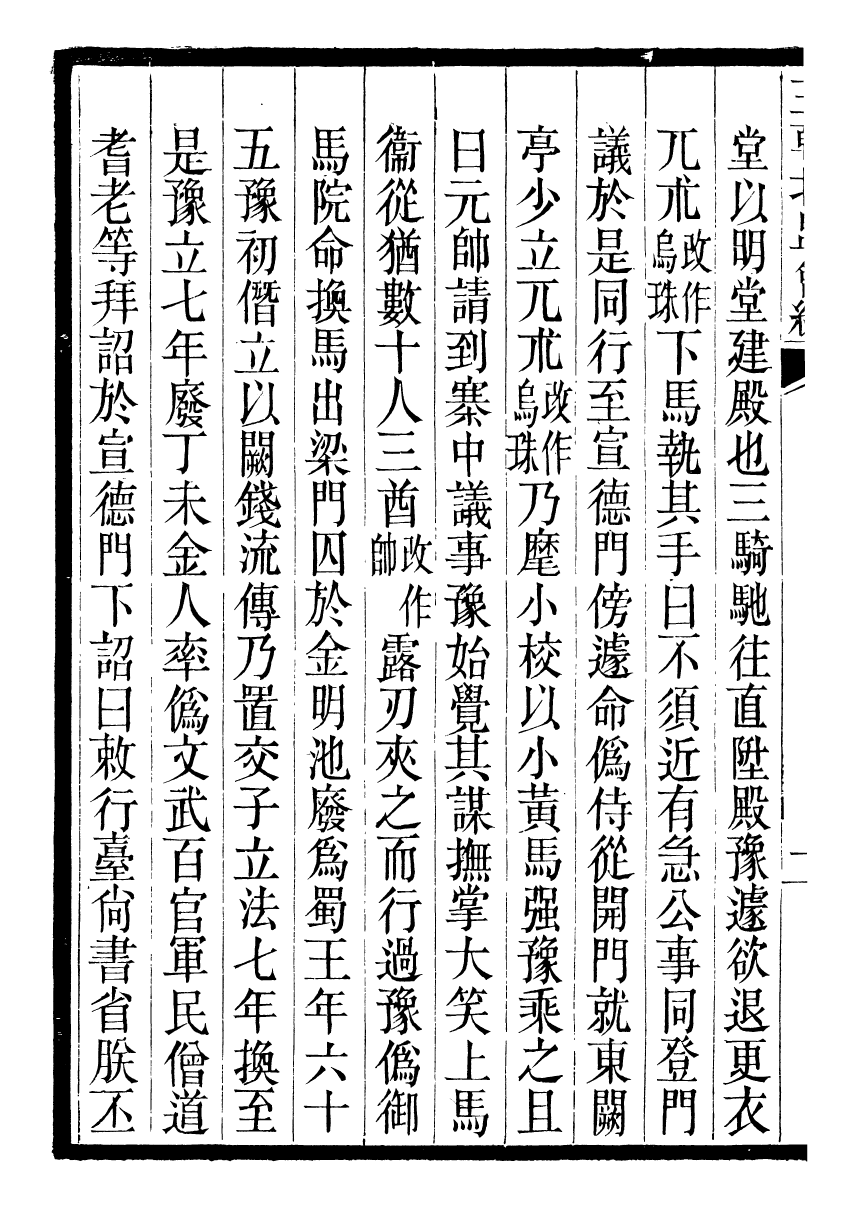 堂以明堂建殿也三騎馳往直陞殿豫遽欲退更衣
兀朮改作烏珠下馬執其手曰不須近有急公事同登門
議於是同行至宣德門傍遽命僞侍從開門就東闕
亭少立兀朮改作烏珠乃麾小校以小黃馬强豫乘之且
曰元帥請到寨中議事豫始覺其謀撫掌大笑上馬
衞從猶數十人三酋改作帥露刃夾之而行過豫僞御
馬院命換馬出梁門囚於金明池廢爲蜀王年六十
五豫初僭立以闕錢流傳乃置交子立法七年換至
是豫立七年廢丁未金人率僞文武百官軍民僧道
耆老等拜詔於宣德門下詔曰敕行臺尙書省朕丕